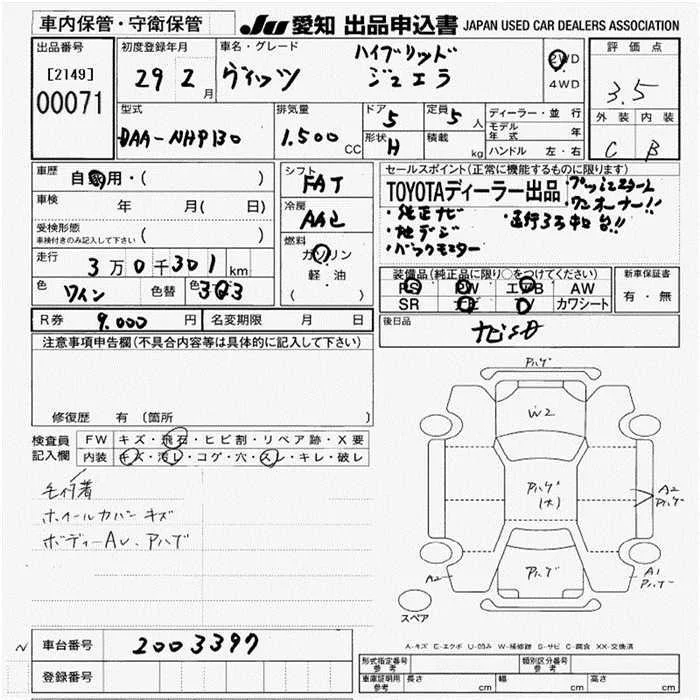 車内保管・守衛保管
JU 愛知 出品申込書 JAPAN USED CAR DEALERS ASSOCIATION
出品番号
[2149]
00071
初度登録年月
29 2 月
車名・グレード
ヴィッツ
ハイブリッド
ジュエラ
2WD
4WD
評価点
3.5
外装 内装
C B
型式
DAA-NHP130
排気量
1.500 CC
ドア 5
形状 H
定員 5 人
積載 kg
ディーラー・並行
モデル年式 年
ハンドル 左・右
車歴
自家用・( )
車検
年 月( 日)
受検形態
車検付きのみ記入して下さい ( )
走行
3万0千301km
色 ワイン 色替 3Q3
シフト
FAT
冷房
AAC
燃料
ガソリン
軽油
( )
セールスポイント(正常に機能するものに限ります)
TOYOTAディーラー出品
・プッシュスタート
・ワンオーナー!!
・純正ナビ
・走行3万キロ台!!
・地デジ
・バックモニター
装備品(純正品に限り○をつけてください)
PS PW エアB AW
SR ナビ TV カワシート
新車保証書
有・無
R券 9.000 円
名変期限 月 日
後日品
ナビSD
注意事項申告欄(不具合内容等は具体的に記入して下さい)
修復歴 有 〔箇所
検査員記入欄
FW キズ・飛石・ヒビ割・リペア跡・X要
内装 キズ・汚レ・コゲ・穴・スレ・キレ・破レ
毛付着
ホイールカバーキズ
ボディーAU、アハゲ
アハゲ
W2
アハゲ
(大)
A2
アハゲ
アハゲ
A2
A1
アハゲ
スペア
A-キズ E-エクボ U-凹み W-補修跡 S-サビ C-腐食 XX-交換済
N
車台番号 2003397
登録番号
形式指定番号
参考
類別区分番号
参考
車庫証明用
参考
長さ cm 幅 cm 高さ cm